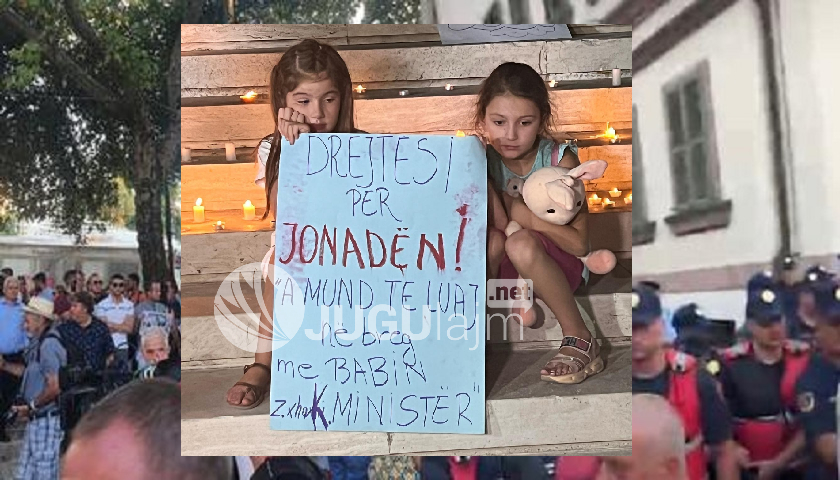 DREJTESI
PËR
JONADËN!
"A MUND TË LUAJ
në breg
me BABIN
Z.xhaKK.MINISTËR"
JUGUlajm
.net